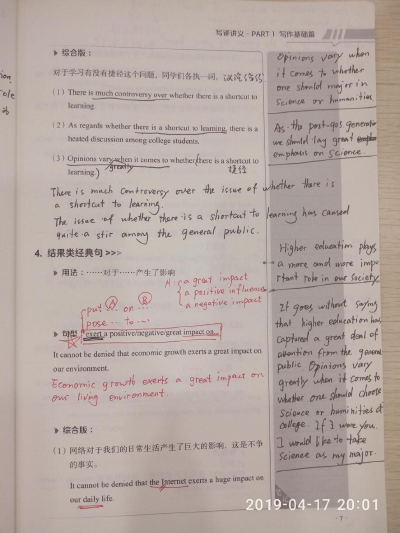 写译讲义·PART 1 写作基础篇
▸ 综合版：
对于学习有没有捷径这个问题，同学们各执一词。
(1) There is much controversy over whether there is a shortcut to
learning.
(2) As regards whether there is a shortcut to learning, there is a
heated discussion among college students.
(3) Opinions vary when it comes to whether there is a shortcut to
learning.
greatly
捷径
There is much controversy over the issue of whether there is
a shortcut to learning.
The issue of whether there is a shortcut to learning has caused
quite a stir among the general public.
4. 结果类经典句 >>>
▸ 用法：……对于……产生了影响
a great impact
a positive influence
a negative impact
put A on B
pose ... to ...
▸ 句型：exert a positive/negative/great impact on...
It cannot be denied that economic growth exerts a great impact on
our environment.
Economic growth exerts a great impact on
our living environment.
▸ 综合版：
(1) 网络对于我们的日常生活产生了巨大的影响，这是不争
的事实。
It cannot be denied that the Internet exerts a huge impact on
our daily life.
Opinions vary when
it comes to whether
one should major in
science or humanities
As the post-90s generation
we should lay great
emphasis on science.
Higher education plays
a more and more impor
tant role in our society
It goes without saying
that higher education has
captured a great deal of
attention from the general
public Opinions vary
greatly when it comes to
whether one should choose
science or huminities at
college. If I were you,
I would like to take
science as my major.
2019-04-17 20:01
7